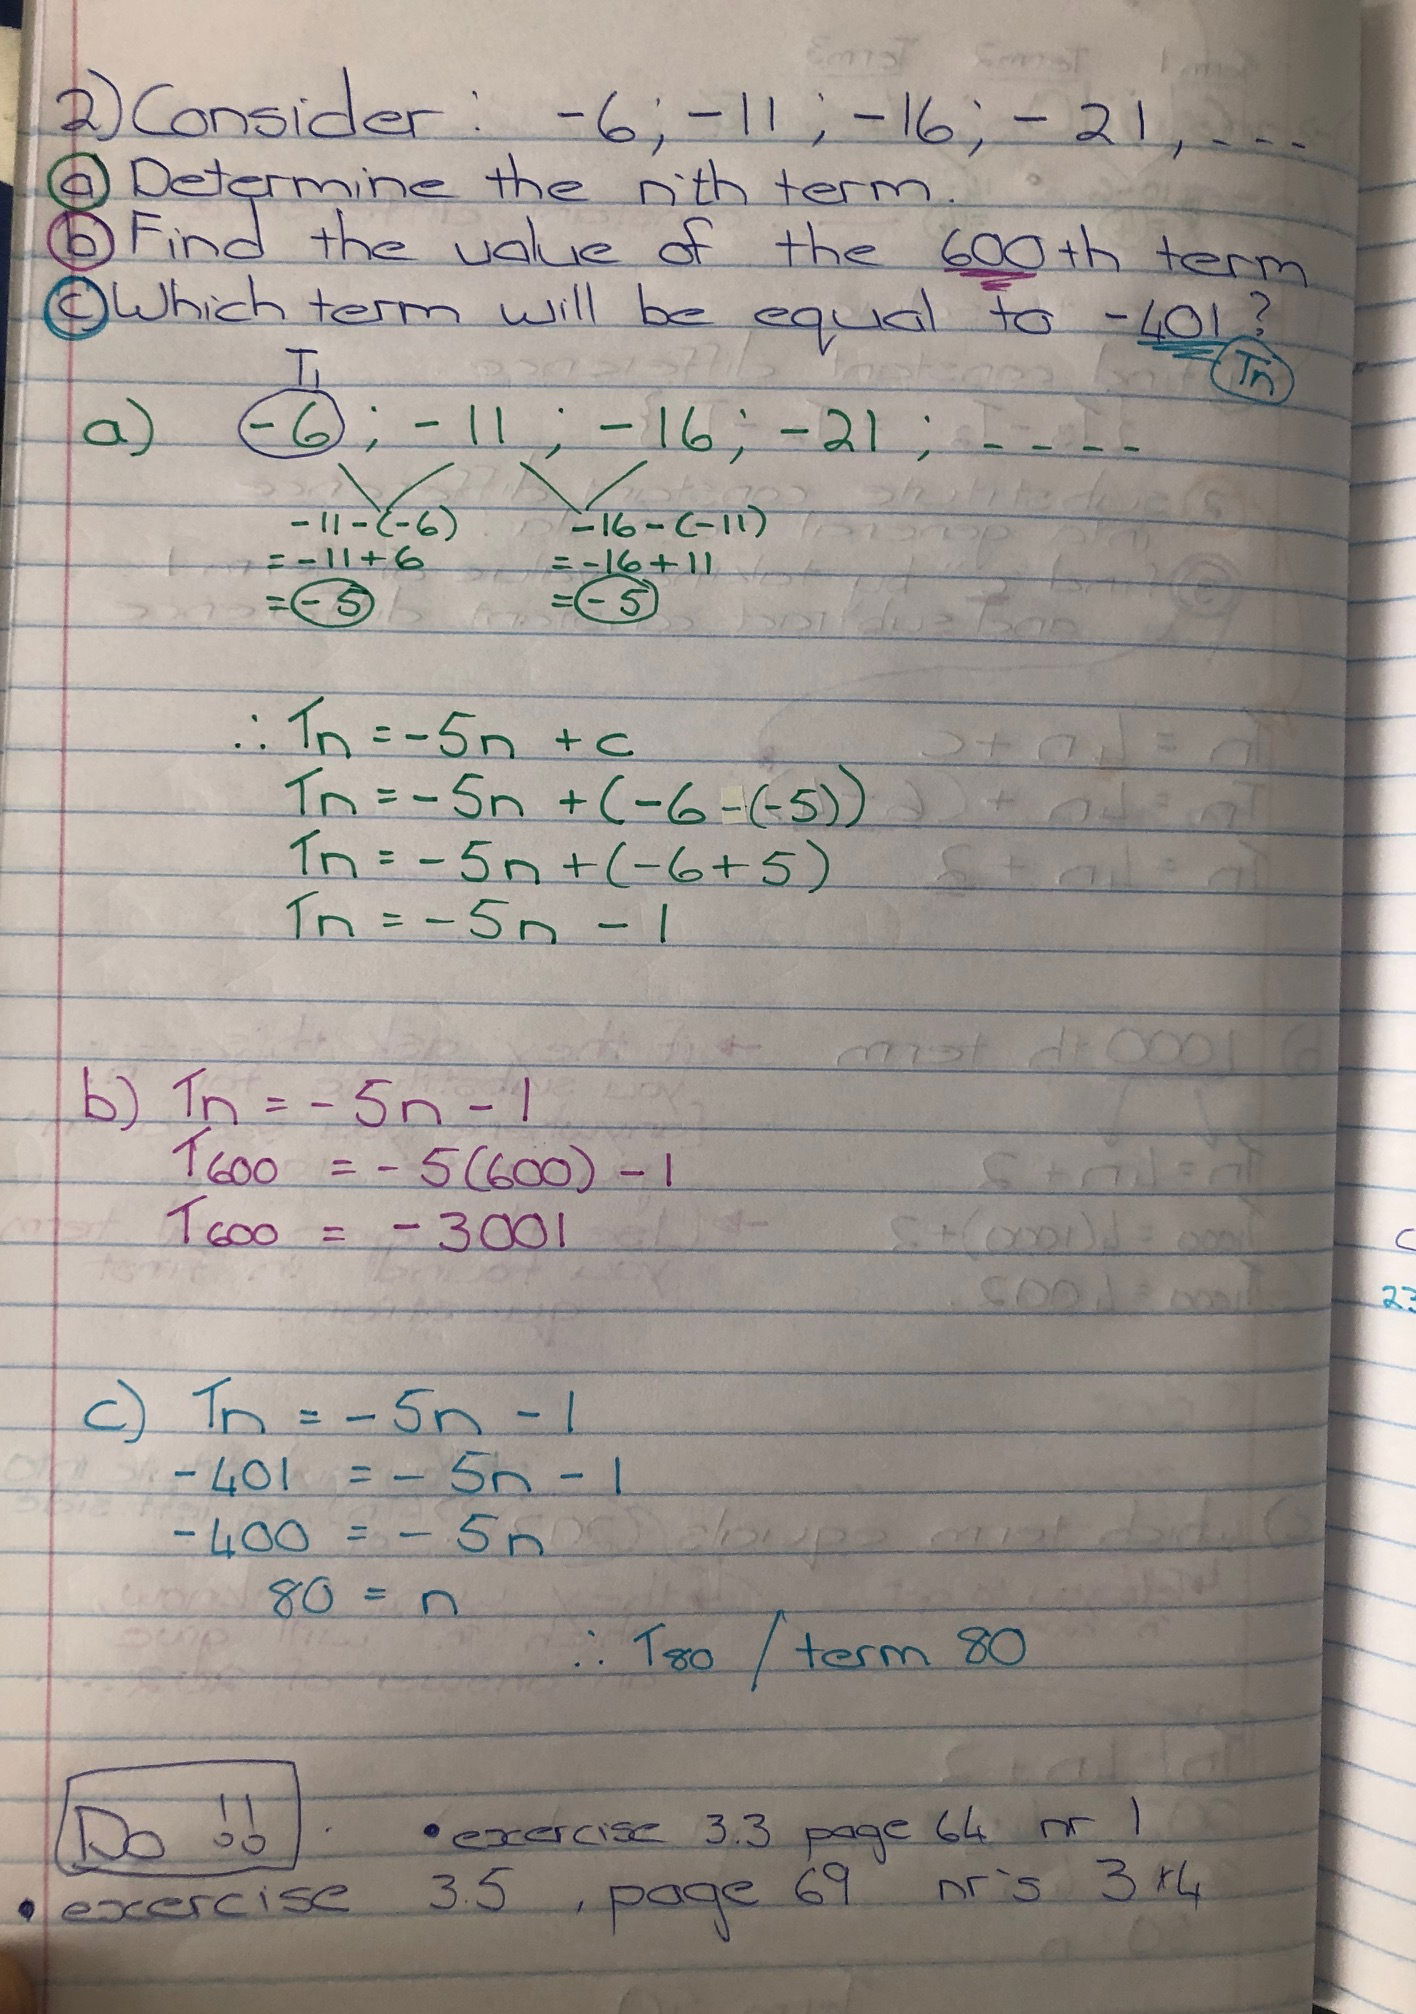 2) Consider : -6; -11; -16; - 21, ...
a) Determine the n'th term.
b) Find the value of the 600th term
c) Which term will be equal to -401?
Tn
T1
a) -6; -11; -16; -21; ----
-11-(-6) -16-(-11)
=-11+6 =-16+11
=-5 =-5
∴ Tn = -5n + c
Tn = -5n + (-6 -(-5))
Tn = -5n + (-6+5)
Tn = -5n - 1
b) Tn = -5n - 1
T600 = -5(600) - 1
T600 = -3001
c) Tn = -5n - 1
-401 = -5n - 1
-400 = -5n
80 = n
∴ T80 / term 80
Do !! • exercise 3.3 page 64 nr 1
• exercise 3.5, page 69 nr's 3 + 4